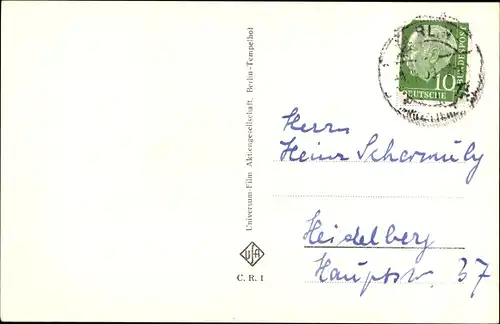 RLIN
10
DEUTSCHE
BUNDESPOST
Herrn
Heinz Schermuly
Heidelberg
Hauptstr. 37
Universum-Film Aktiengesellschaft, Berlin-Tempelhof
UFA
C. R. 1